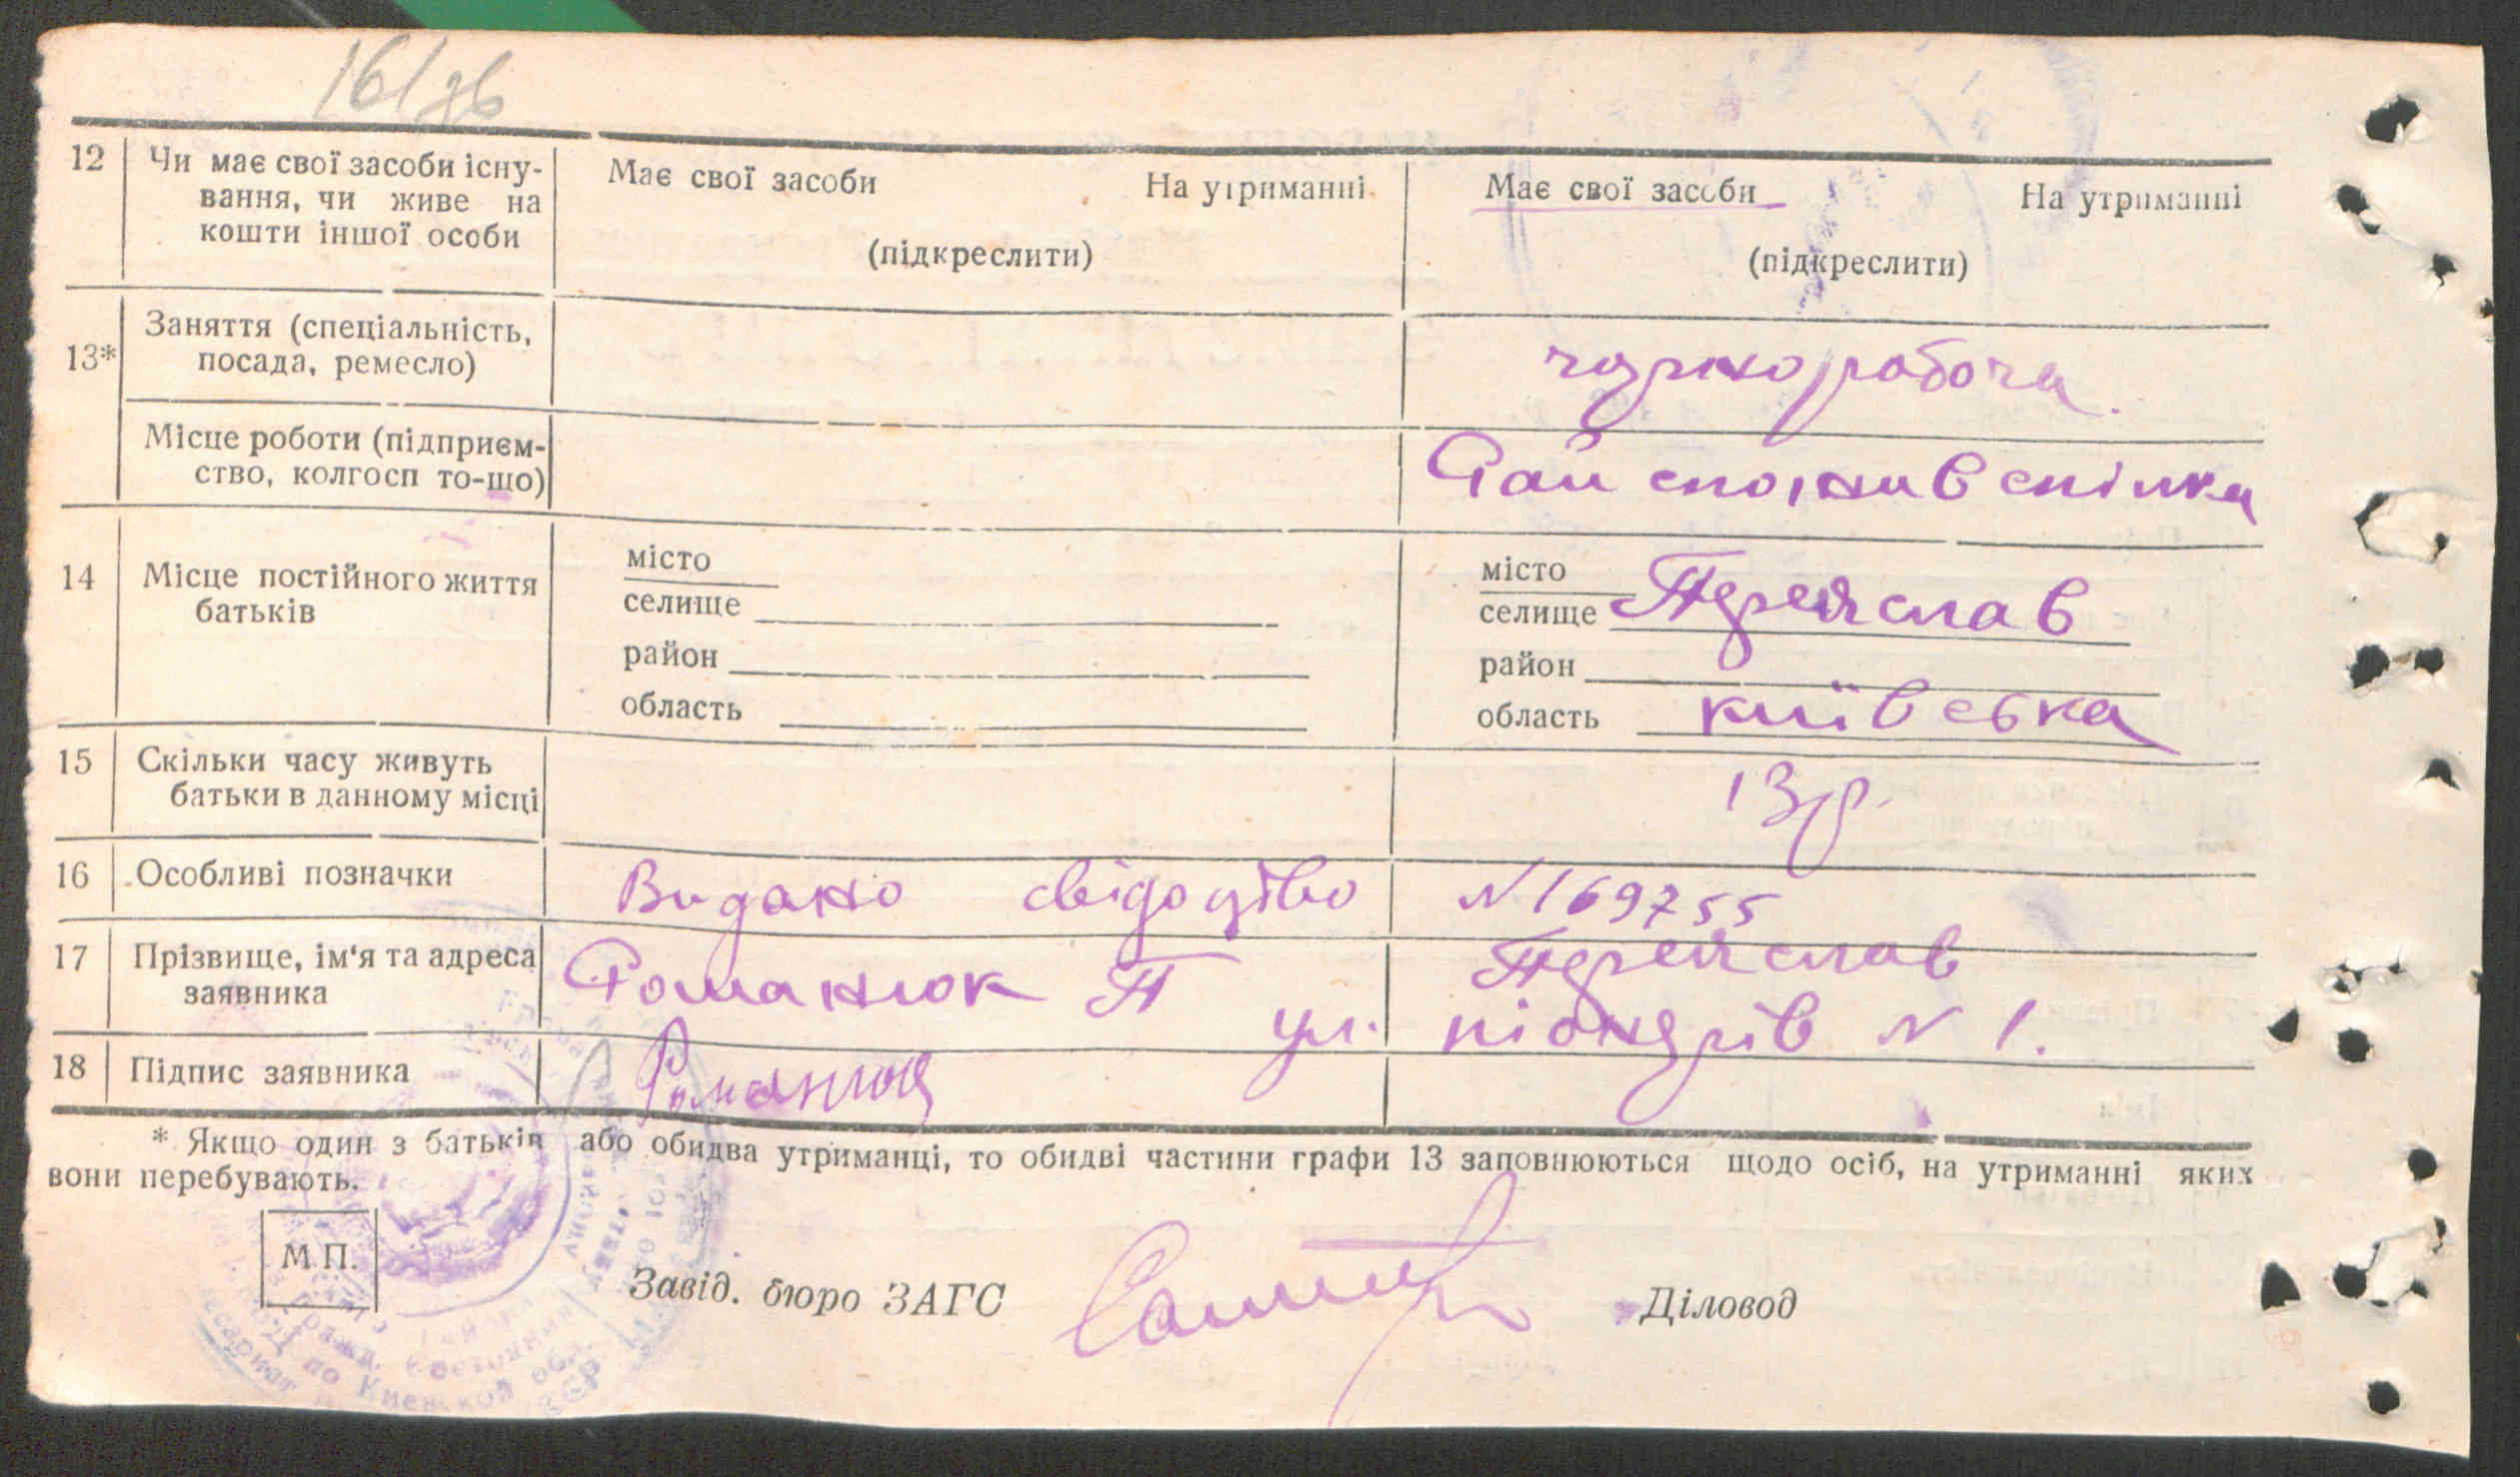 16/зв
12 Чи має свої засоби існу- Має свої засоби На утриманні Має свої засоби На утриманні
вання, чи живе на
кошти іншої особи (підкреслити) (підкреслити)
13* Заняття (спеціальність,
посада, ремесло) чорнороboча
Місце роботи (підприєм-
ство, колгосп то-що) Рай споживспілка
14 Місце постійного життя
батьків
місто місто
селище селище Переяслав
район район
область область київська
15 Скільки часу живуть
батьки в данному місці 13 р.
16 Особливі позначки Видано свідоцтво N 169755
17 Прізвище, ім'я та адреса Романюк П Переяслав
заявника ул. піонерів N 1.
18 Підпис заявника Романюк
* Якщо один з батьків або обидва утриманці, то обидві частини графи 13 заповнюються щодо осіб, на утриманні яких
вони перебувають.
М П.
Завід. бюро ЗАГС Діловод
по Киевской обл.